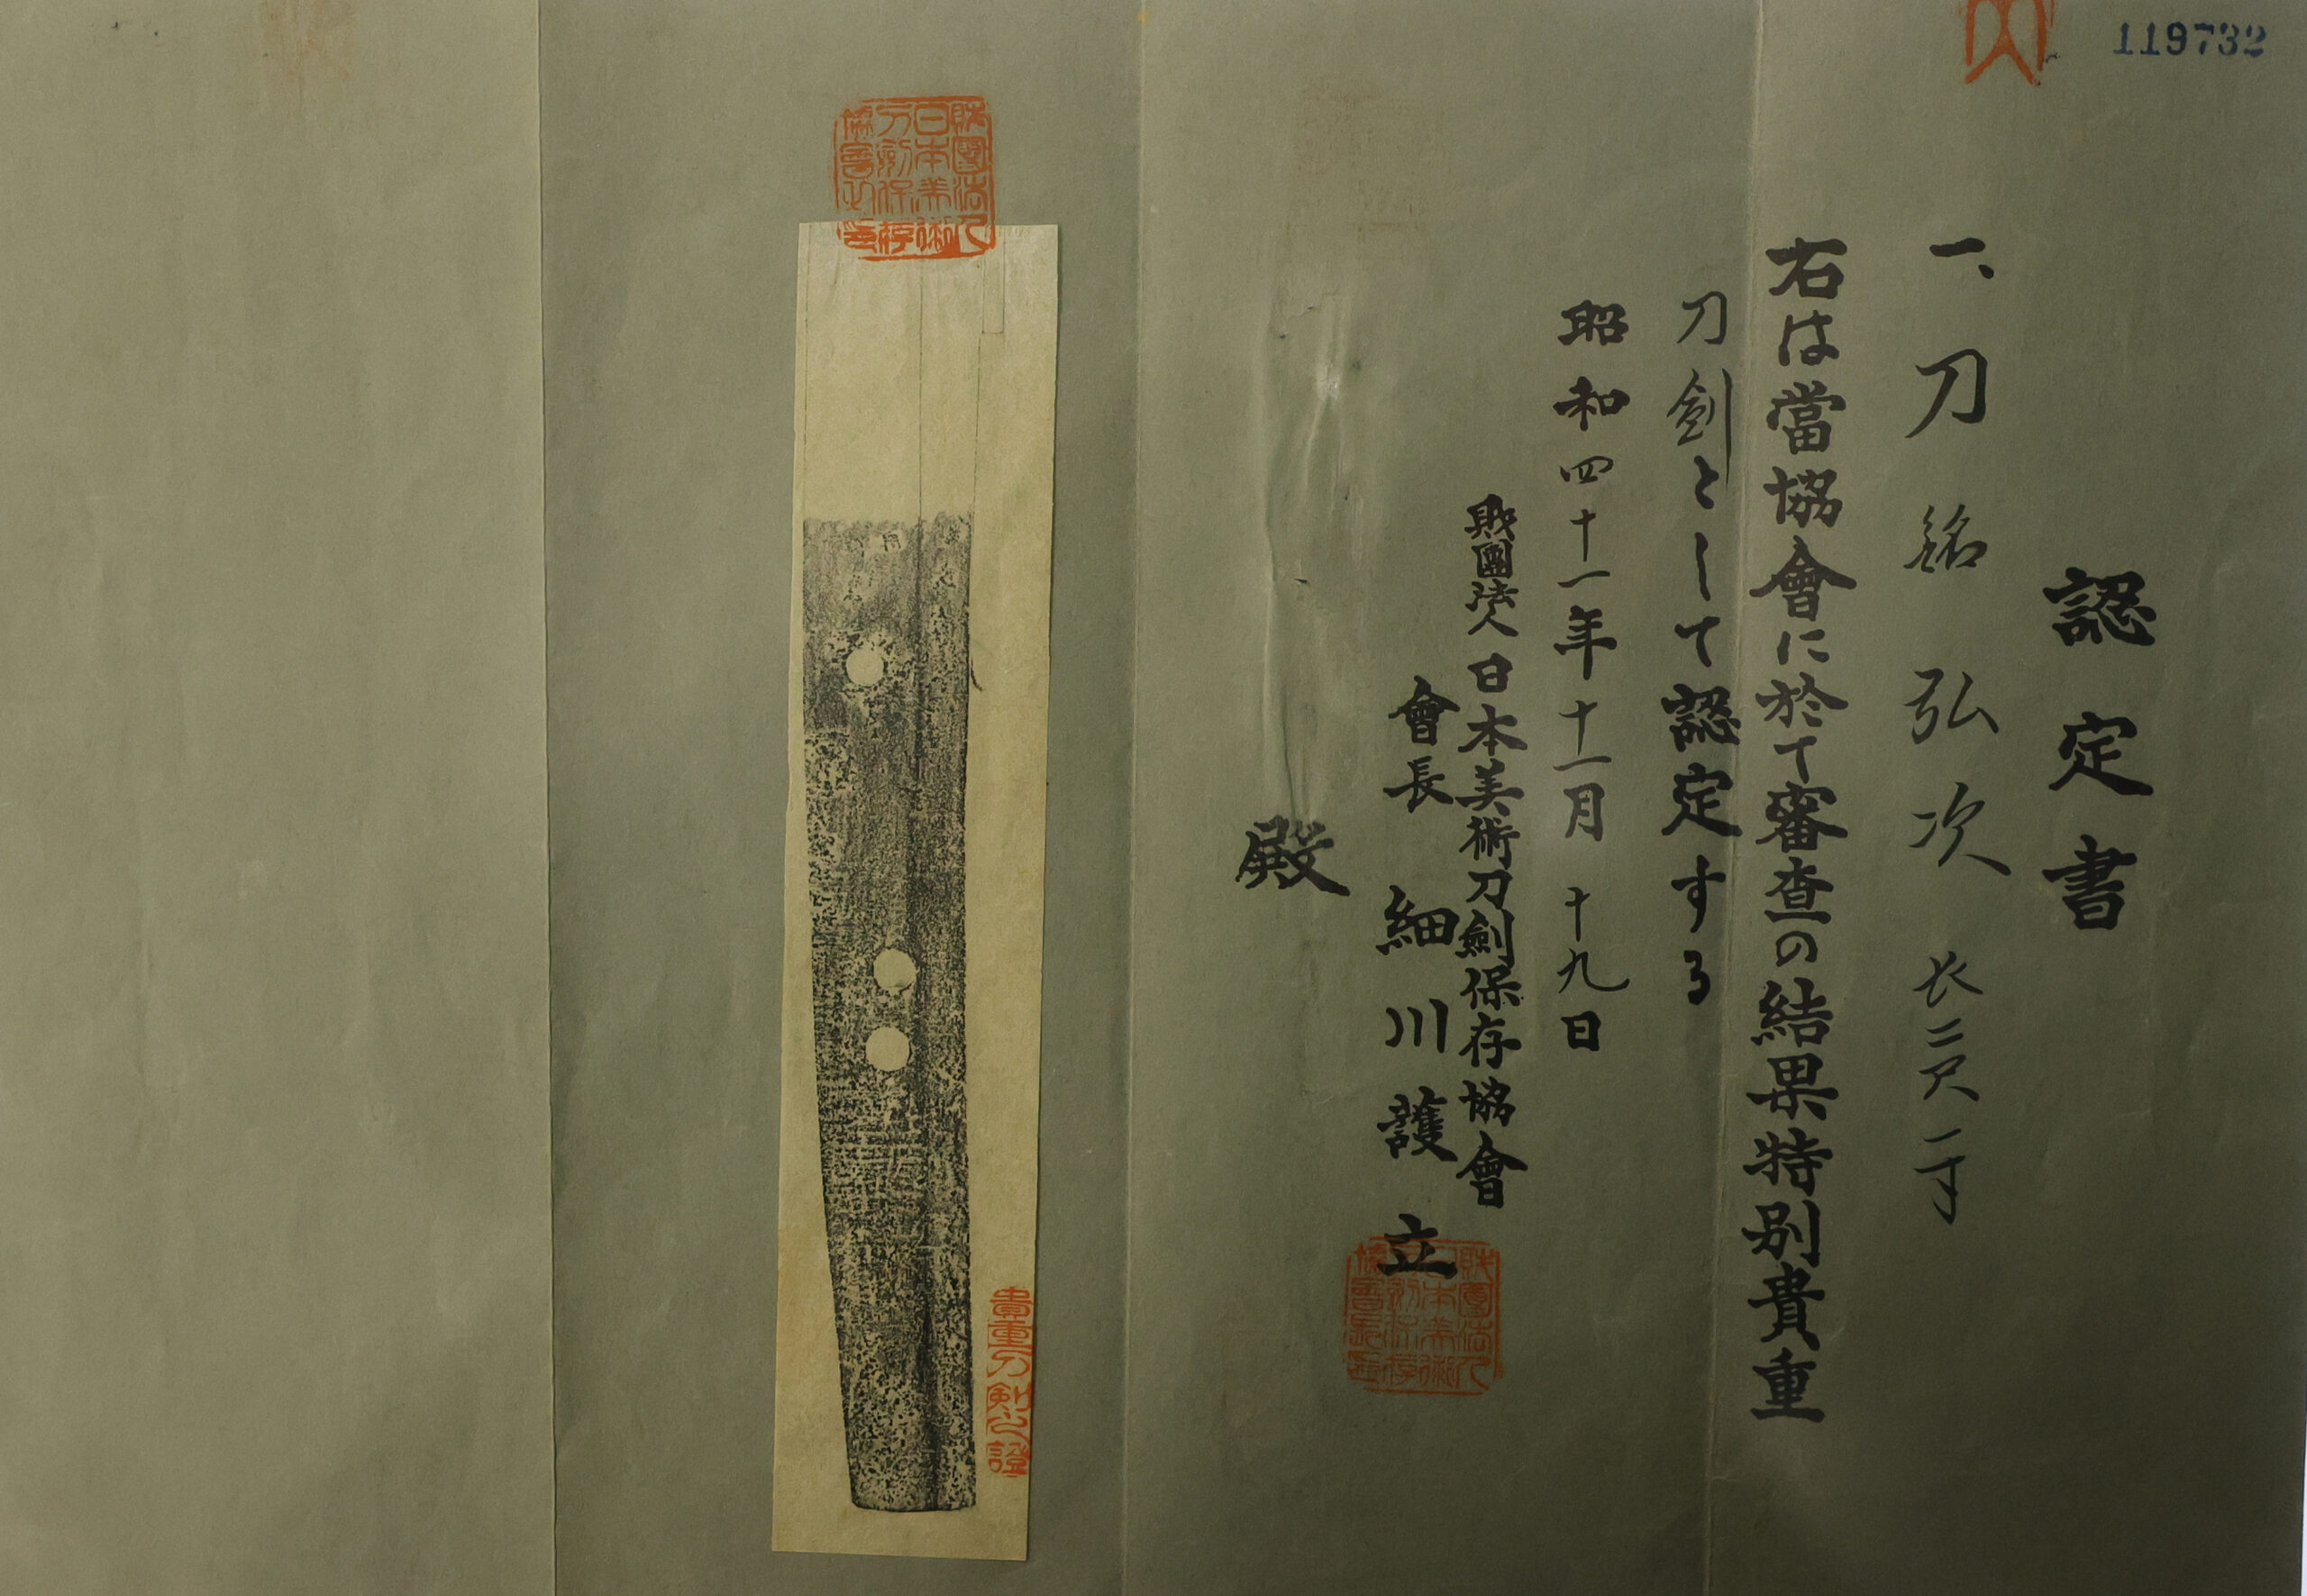 119732
認定書
一、刀 銘 弘次 長二尺一寸
右は當協會に於て審査の結果特別貴重
刀剣として認定する
昭和四十一年十一月十九日
財團法人日本美術刀劍保存協會
會長 細川護立
殿
財團法人日本美術刀剣保存協會長之印
貴重刀剣之證